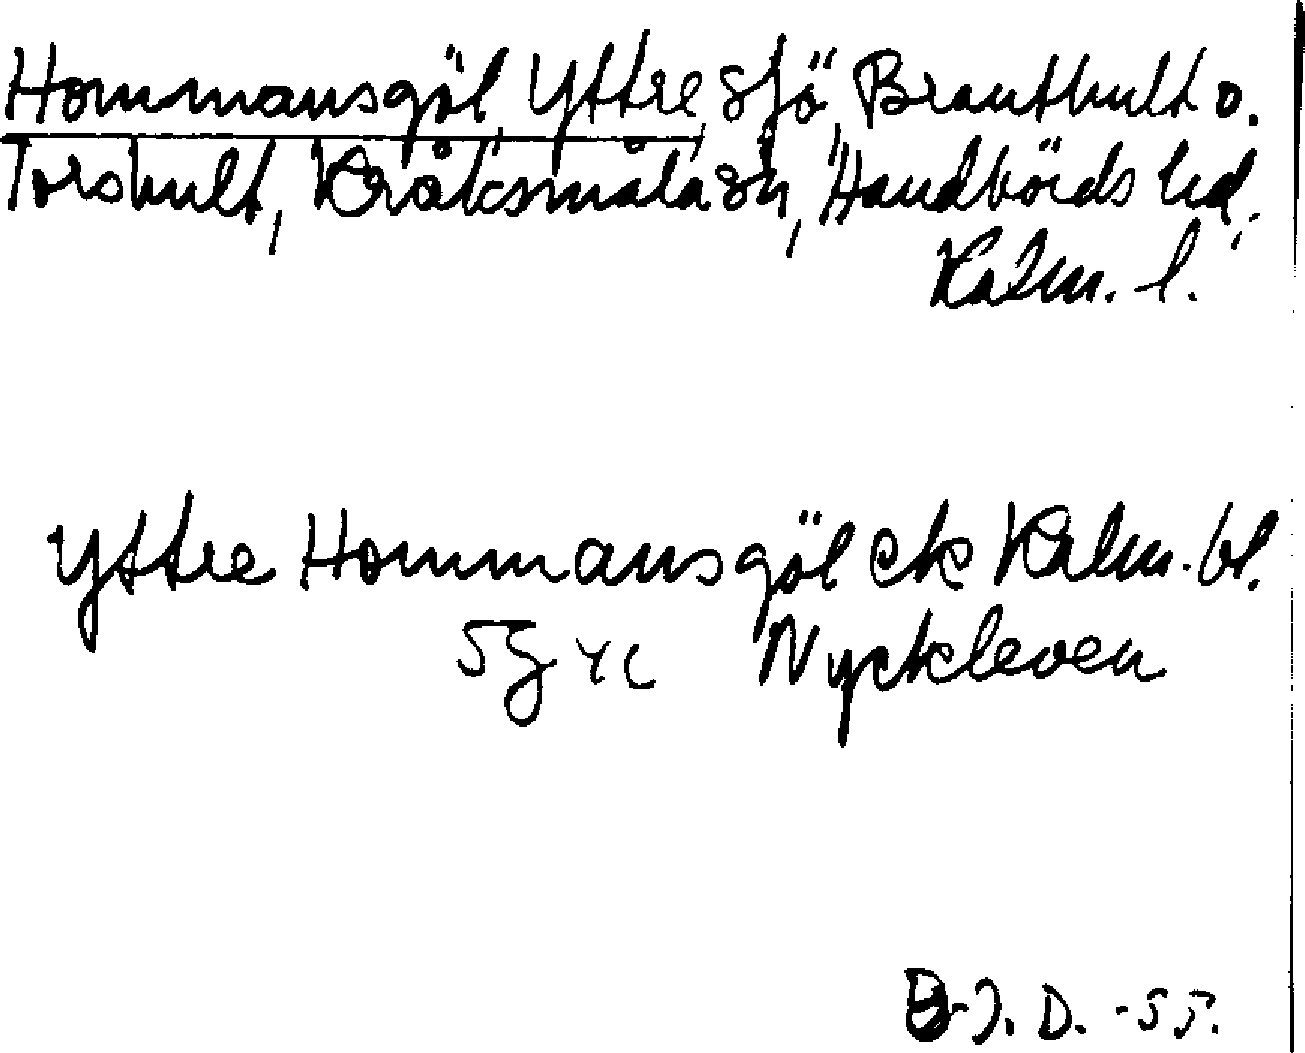 Hommansgöl, Yttre, sjö, Brauthult o.
Torshult, Kråksmåla sn, Handbörds hd,
Kalm. l.
Yttre Hommansgöl ek Kalm. bl.
Nyckleven
B-J. D. -55.